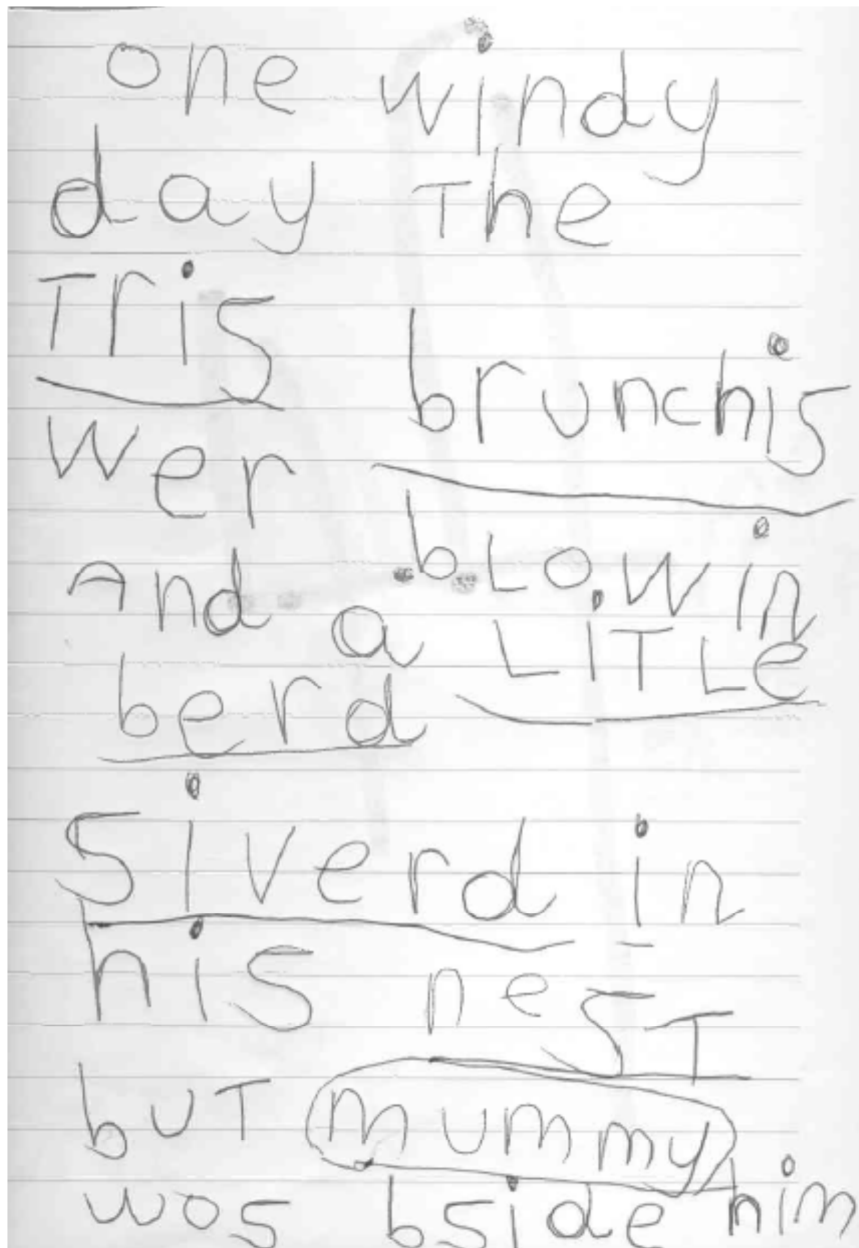 one windy
day The
Tris brunchis
wer bLowin
And a LiTLe
berd
Siverd in
his nesT
buT mummy
wos bside him